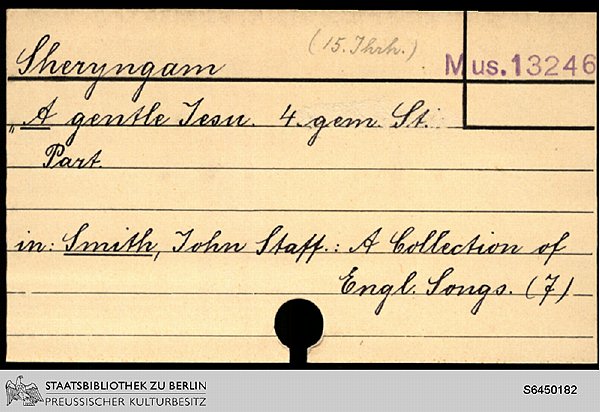 (15. Jhrh.)
Sheryngam
Mus. 13246
"A gentle Jesu. 4. gem. St.
Part.
in: Smith, John Staff.: A Collection of
Engl. Songs. (7)
STAATSBIBLIOTHEK ZU BERLIN
PREUSSISCHER KULTURBESITZ
S6450182